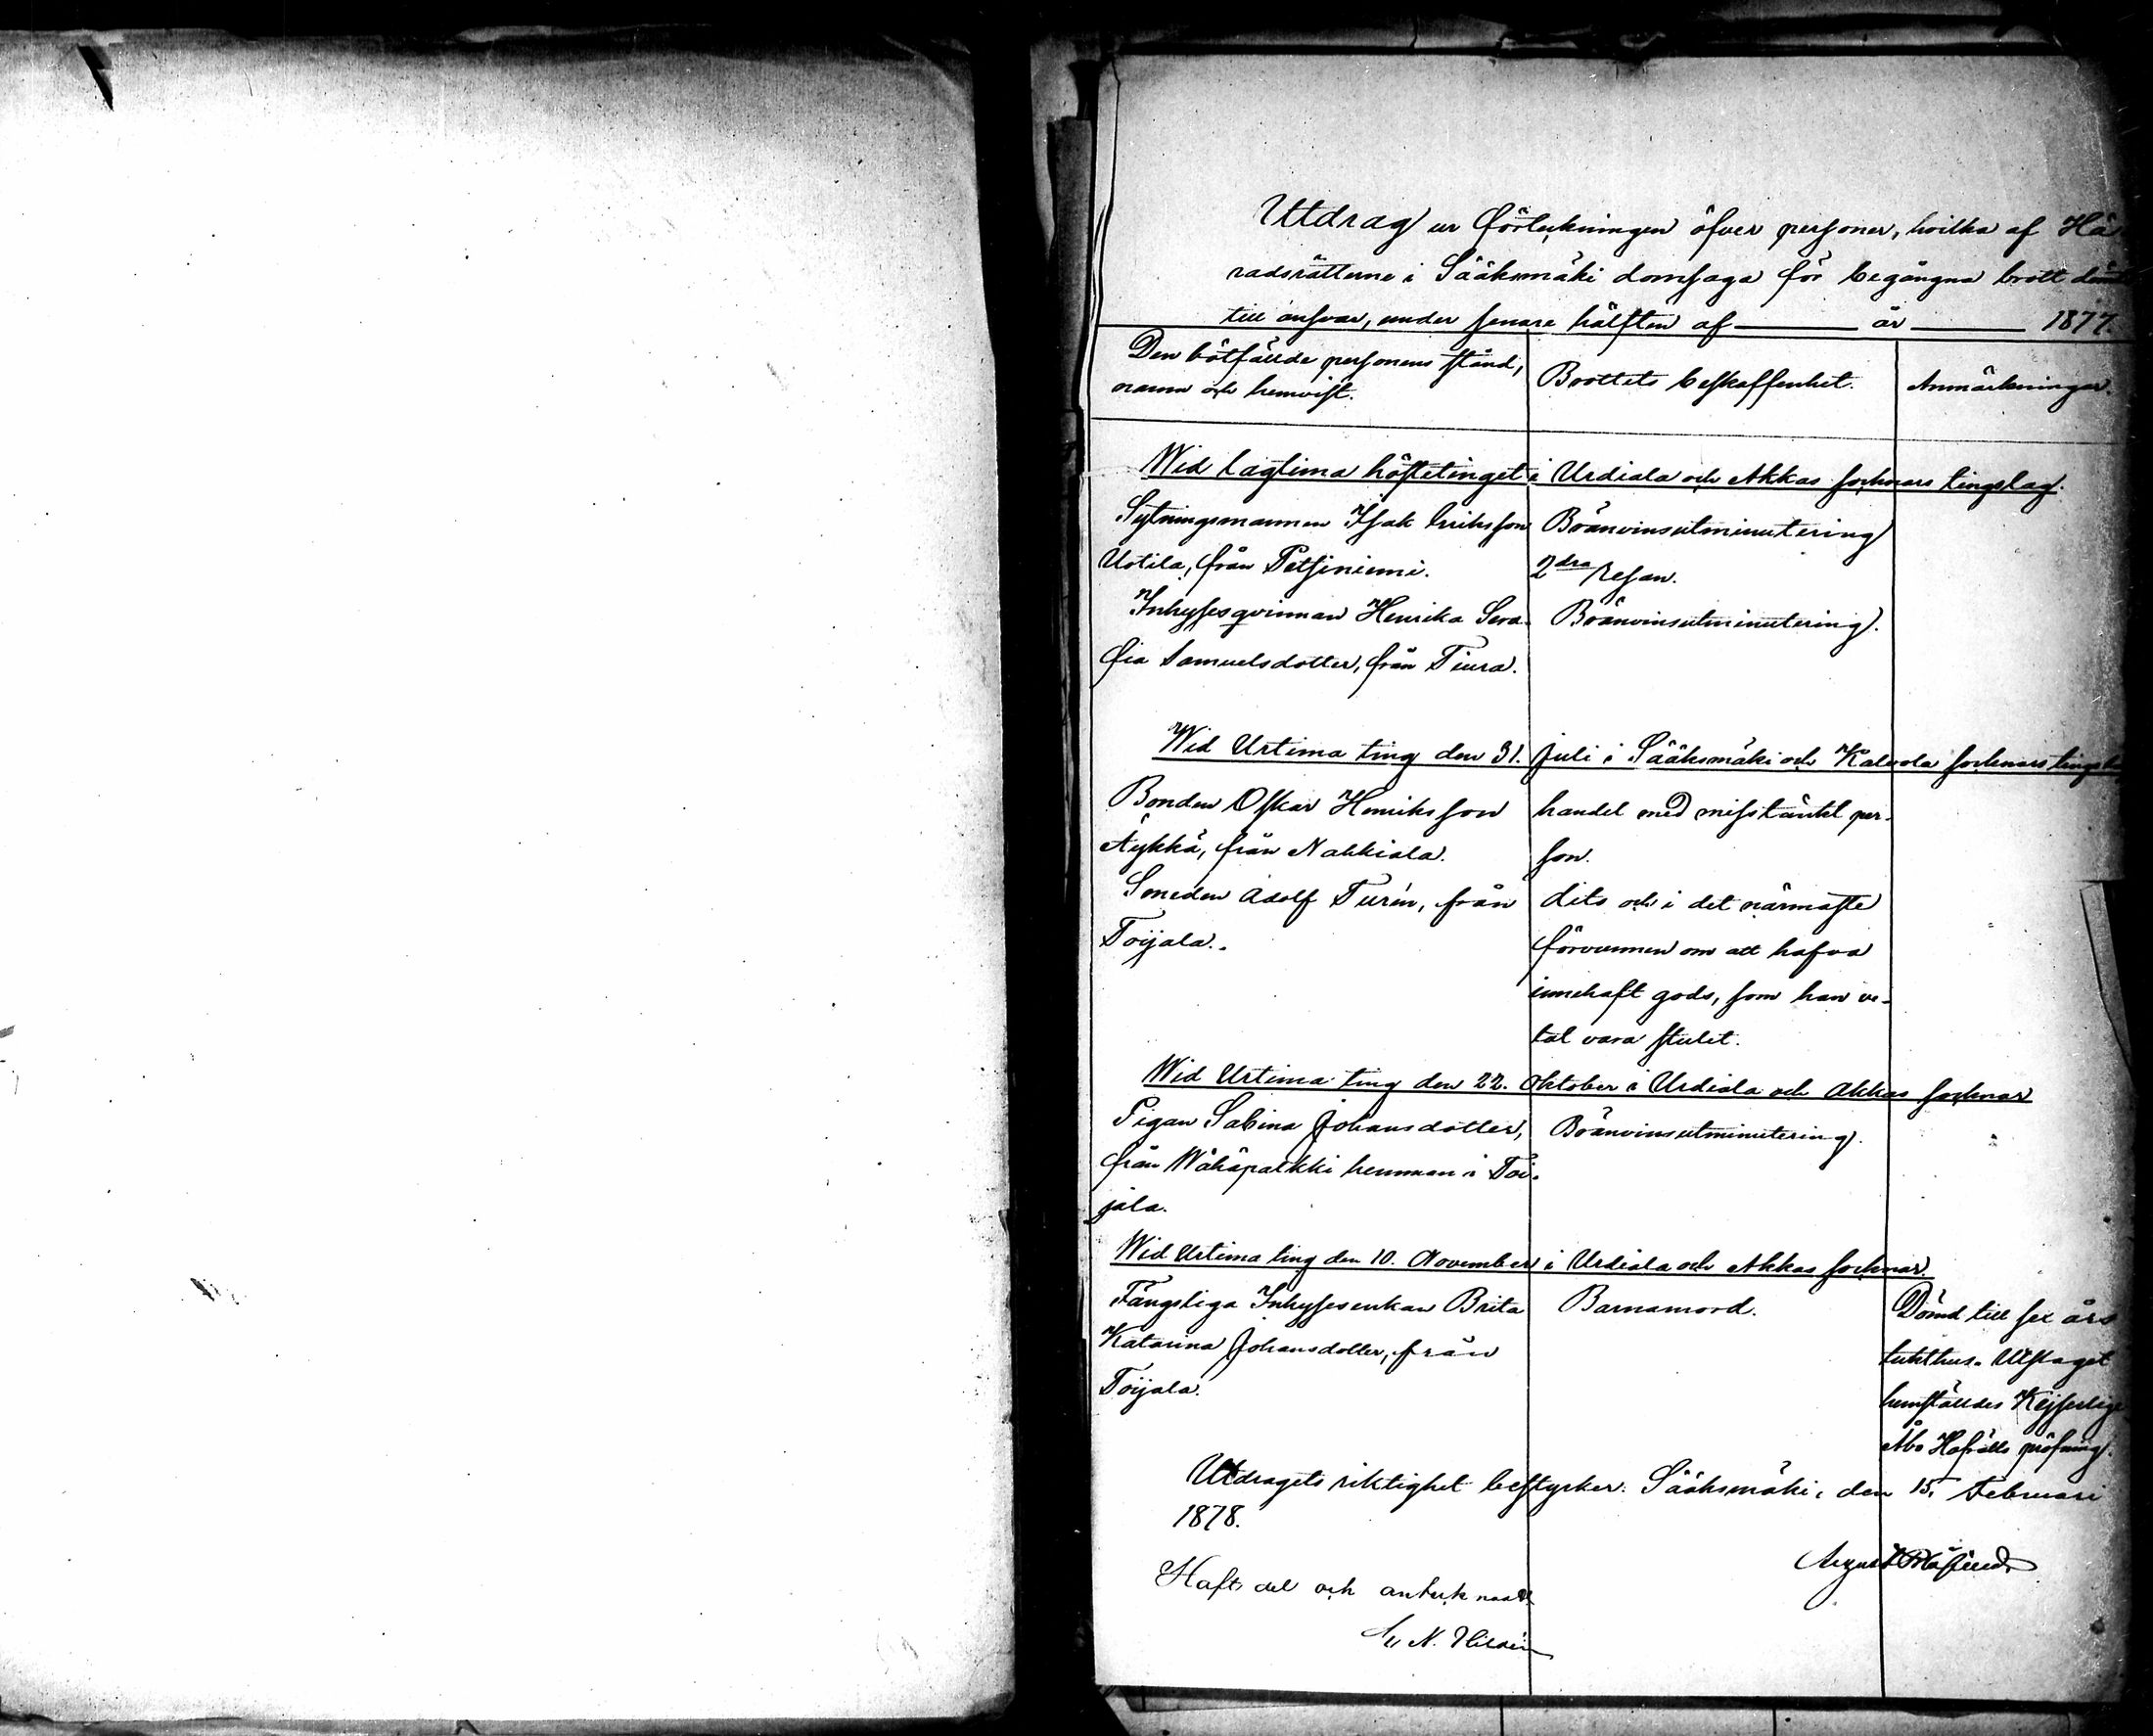 Utdrag ur förteckningen öfver personer, hvilka af Hä-
radsrätterne i Sääksmäki domsaga för begångna brott dömts
till ansvar, under senare hälften af ——— år ——— 1877.
Den bötfällde personens stånd, namn och hemvist. Brottets beskaffenhet. Anmärkningar.
Wid lagtima hösttetinget i Urdiala och Akkas socknars tingslag.
Sytningsmannen Isak Eriksson Bränvinsutminutering
Uotila, från Petsiniemi. 2dra resan.
Inhysesqvinnan Henrika Sera- Bränvinsutminutering.
fia Samuelsdotter, från Tiura.
Wid Urtima ting den 31. Juli i Sääksmäki och Kalvola socknars tingsl
Bonden Oskar Henriksson handel med misstänkt per-
Äykkä, från Nakkiala. son.
Smeden Adolf Turén, från dito och i det närmaste
Toijala. förvunnen om att hafva
innehaft gods, som han ve-
tat vara stulet.
Wid Urtima ting den 22. Oktober i Urdiala och Akkas socknar
Pigan Sabina Johansdotter, Bränvinsutminutering.
från Wähäpalkki hemman i Toi-
jala.
Wid Urtima ting den 10. November i Urdiala och Akkas socknar.
Fängsliga Inhysesenkan Brita Barnamord. Dömd till sex års
Katarina Johansdotter, från tukthus. Utslaget
Toijala. hemställdes Kejserlige
Åbo Hofrätts pröfning.
Utdragets riktighet bestyrker. Sääksmäki, den 15. Februari
1878.
August
Haft del och antecknadt
N. Hildén